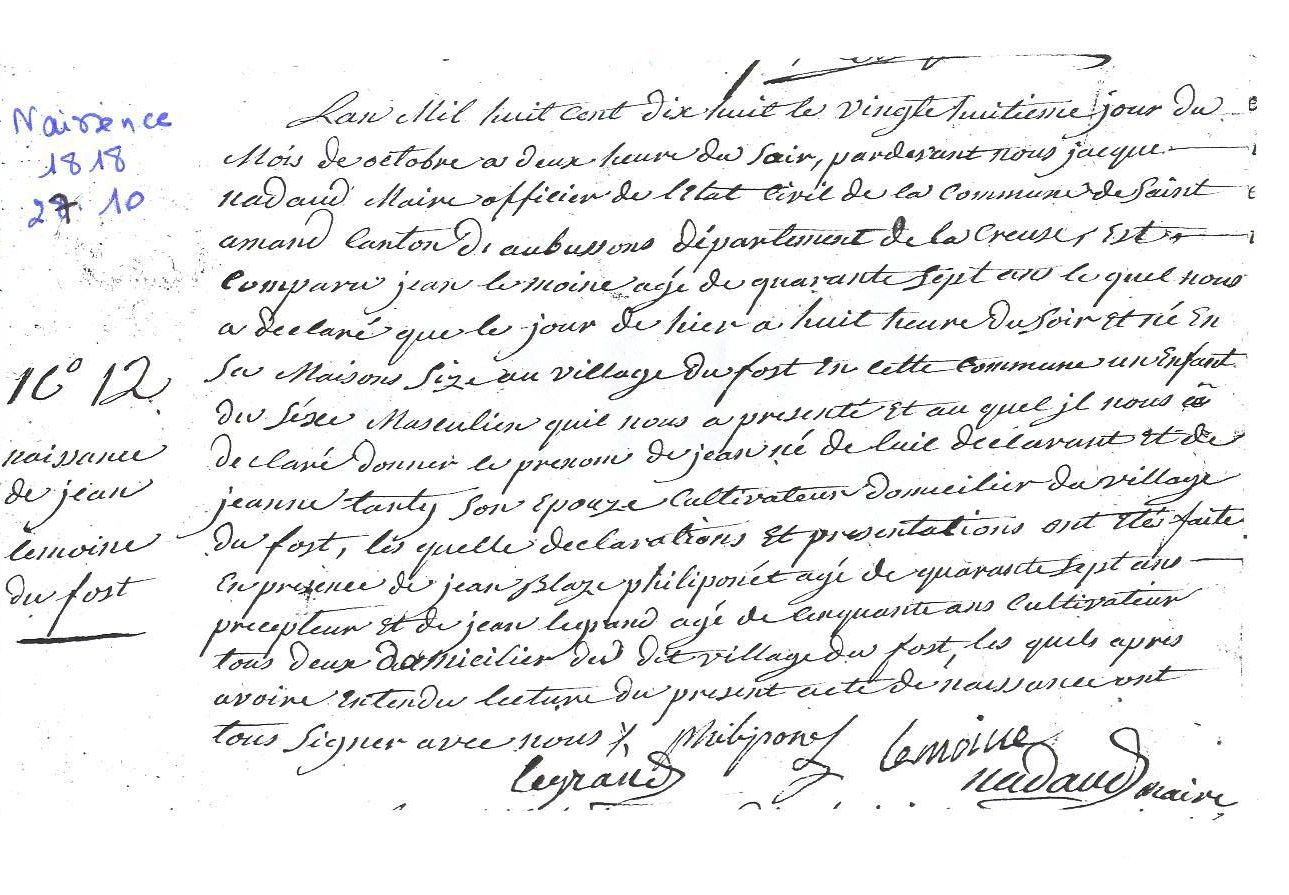 Naissence
1818
27 10
N° 12
naissance
de jean
lemoine
du fost
Lan Mil huit Cent dix huit le vingle huitieme jour du
Mois de octobre a deux heure du Soir, pardevant nous jacque
nadaud Maire officier de l'Etat Civil de la Commune de Saint
amand Canton De aubussons département de la Creuse, Est
Comparu jean lemoine agé de quarante Sept ans le quel nous
a declaré que le jour de hier a huit heure Du Soir Et né En
Sa Maisons Size au village Du fost En cette Commune un Enfant
du Séxe Masculien quil nous a presenté Et au quel jl nous a
declaré donner le prenom de jean né de luil declarant Et de
jeanne tanty Son Epouze Cultivateur Domicilier du village
du fost, les quelle declarations Et presentations ont Etés faite
En presence de jean Blaze philiponét agé de quarante Sept ans
precepteur Et de jean legrand agé de Cinquante ans Cultivateur
tous deux Domicilier du dit village Du fost, les quels apres
avoire Entendu lecture Du present acte de naissance ont
tous Signer avec nous
philiponet
lemoine
legrand
nadaud maire